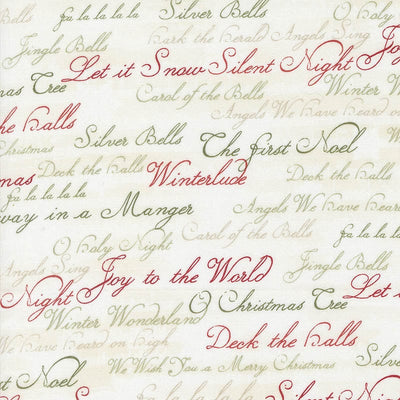 fa la la la la Silver Bells O Holy
Jingle Bells Hark the Herald Angels Sing
Let it Snow Silent Night Joy
mas Tree Carol of the Bells Winter W
Angels We Have heard on
he Halls Silver Bells The First Noel
Christmas Deck the Halls Deck the Halls
mas Winterlude
fa la la la la Angels We Have heard
way in a Manger Carol of the Bells fa la la la
O Holy Night Jingle Bells
Angels Sing Joy to the World
Night O Christmas Tree Let i
Winter Wonderland
We Have heard on High Deck the Halls
We Wish You a Merry Christmas Silver
st Noel fa la la la la Silent Night